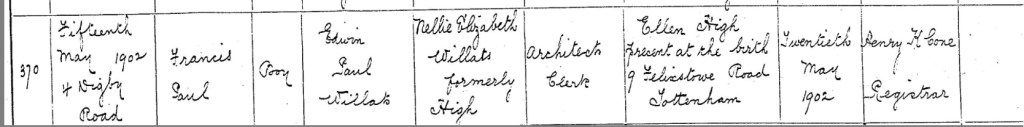 370
Fifteenth
May 1902
4 Digby
Road
Francis
Paul
Boy
Edwin
Paul
Willats
Nellie Elizabeth
Willats
formerly
High
Architects
Clerk
Ellen High
present at the birth
9 Felixstowe Road
Tottenham
Twentieth
May
1902
Henry K Cone
Registrar